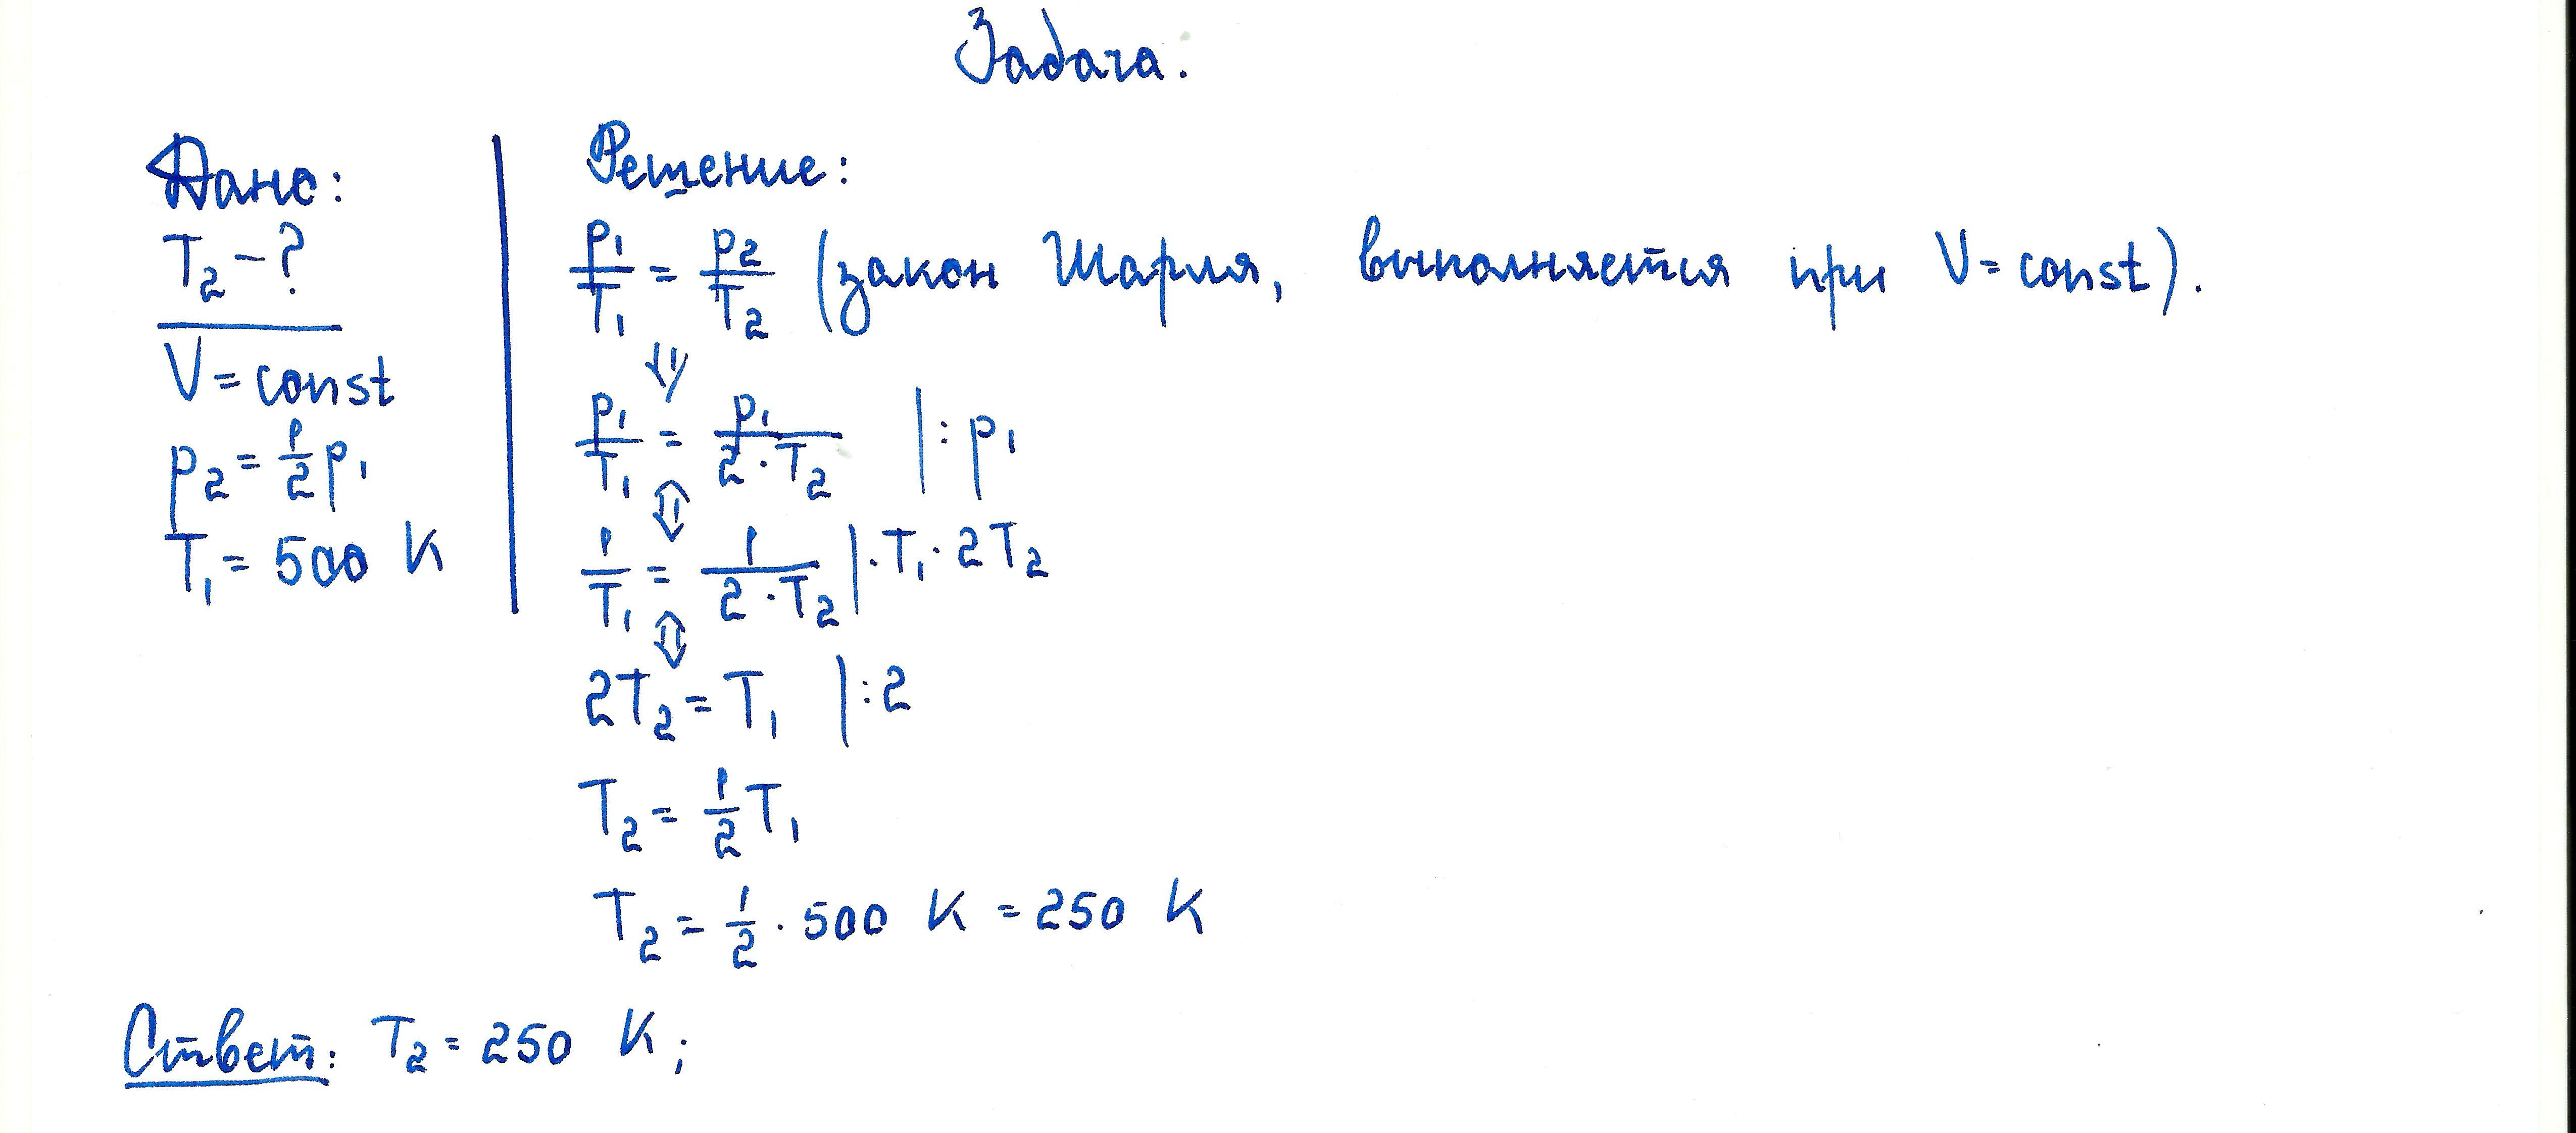 Задача.
Дано:
T₂ – ?
V = const
p₂ = 1/2 p₁
T₁ = 500 K
Решение:
p₁/T₁ = p₂/T₂ (закон Шарля, выполняется при V = const).
⇓
p₁/T₁ = p₁/(2 · T₂) | : p₁
⇕
1/T₁ = 1/(2 · T₂) | · T₁ · 2T₂
⇕
2T₂ = T₁ | : 2
T₂ = 1/2 T₁
T₂ = 1/2 · 500 K = 250 K
Ответ: T₂ = 250 K;